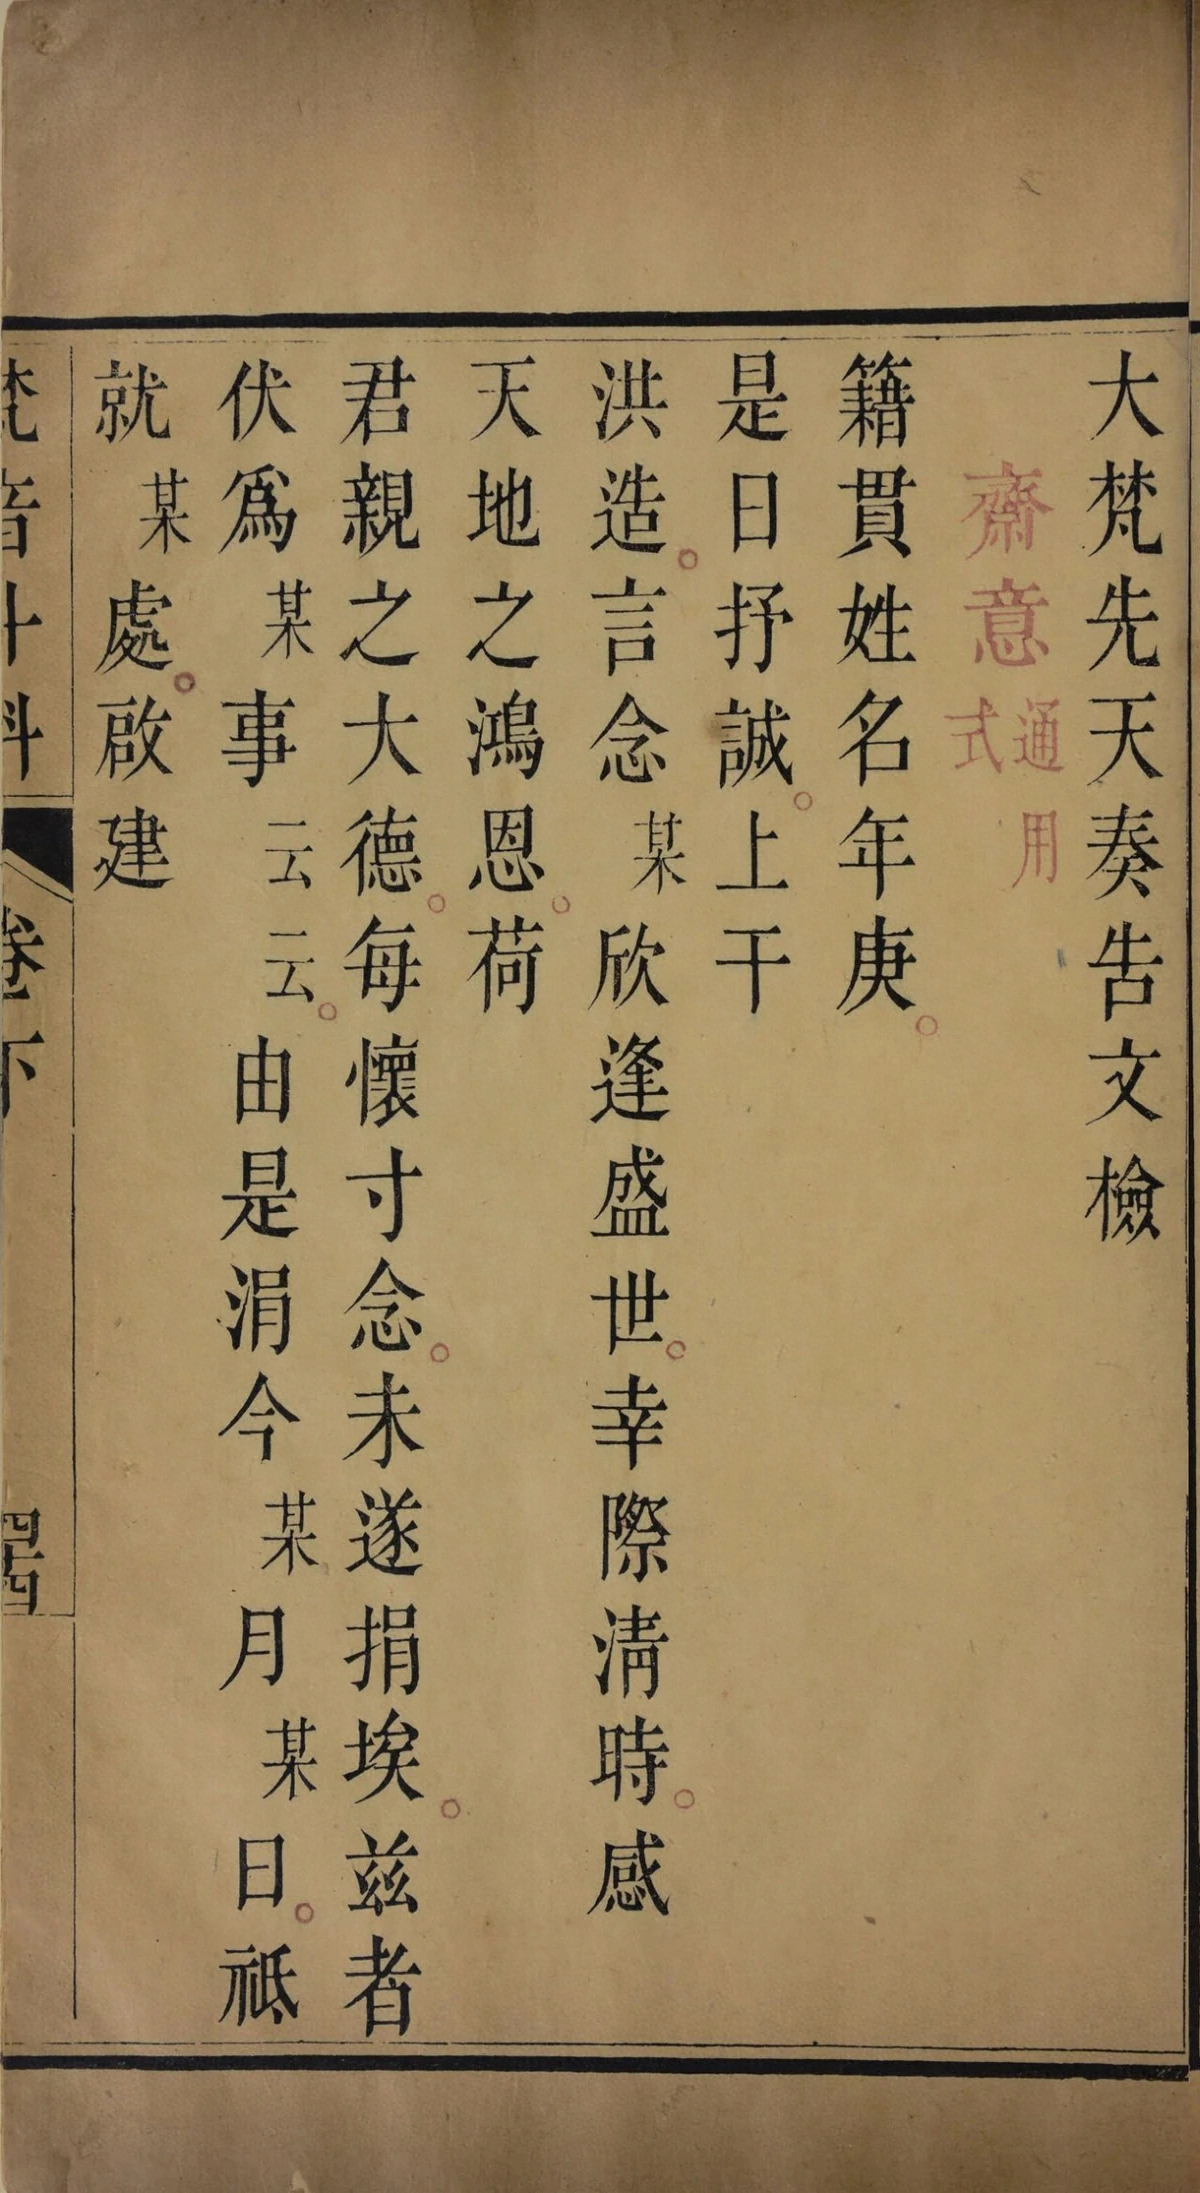 大梵先天奏告文檢
齋意通用式
籍貫姓名年庚。
是日抒誠。上干
洪造。言念某欣逢盛世。幸際淸時。感
天地之鴻恩。荷
君親之大德。每懷寸念。未遂捐埃。茲者
伏爲某事云云。由是涓今某月某日。祗
就某處。啟建
梵音斗科 卷下 四十四